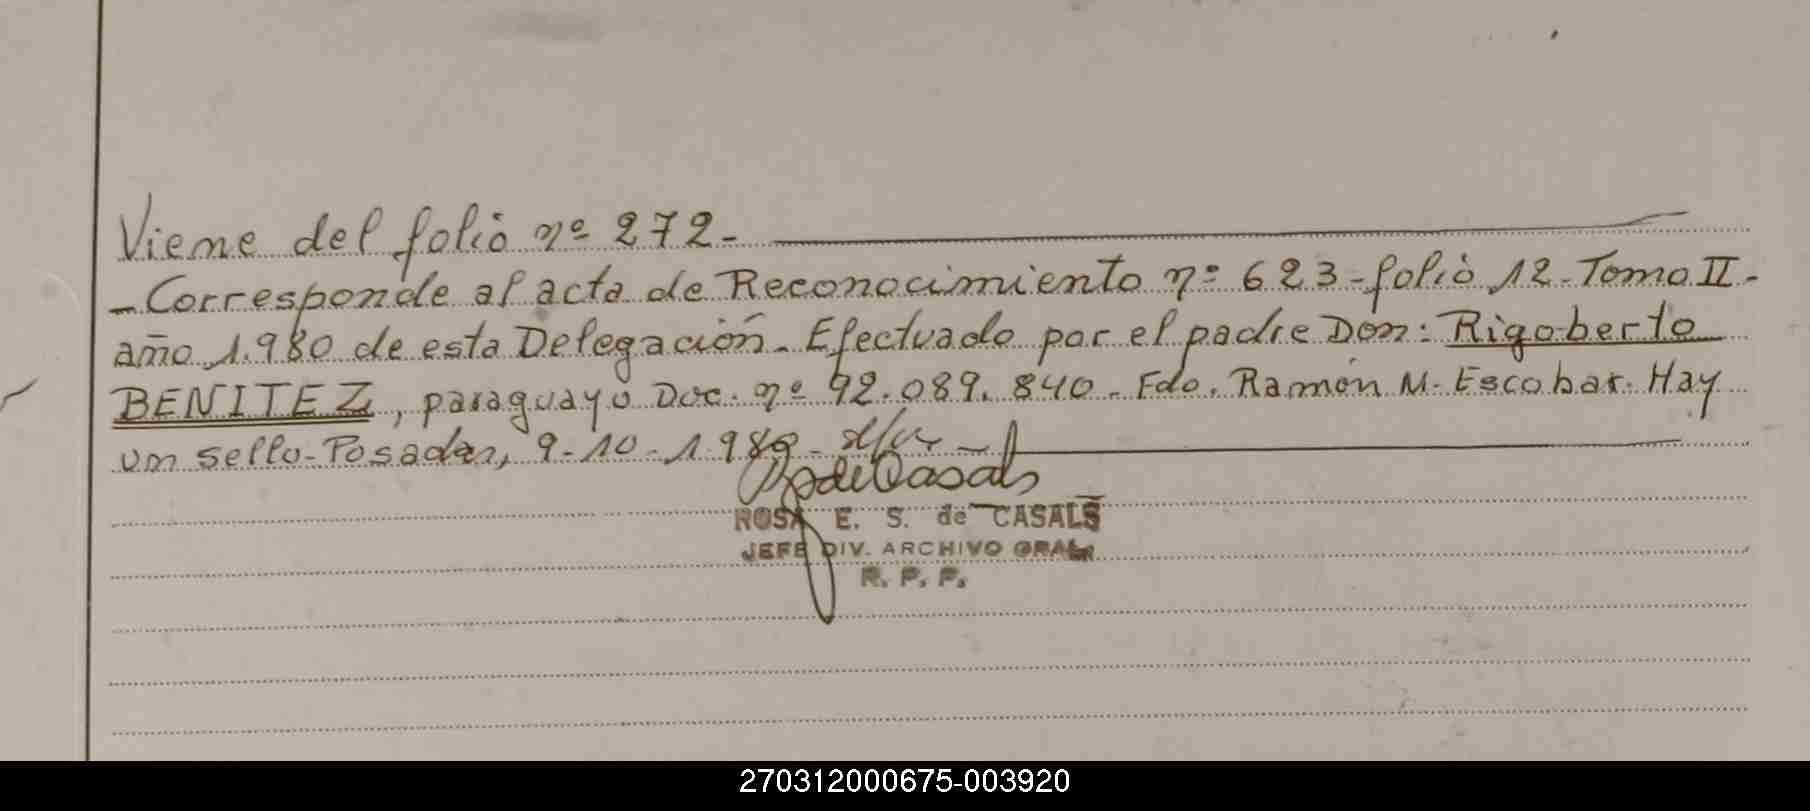 Viene del folio nº 272.-
- Corresponde al acta de Reconocimiento nº 623 - folio 12 - Tomo II -
año 1.980 de esta Delegación. Efectuado por el padre Don: Rigoberto
BENITEZ, paraguayo Doc. nº 92.089.840 - Fdo. Ramón M. Escobar. Hay
un sello - Posadas, 9-10-1.989 -
ROSA E. S. de CASALS
JEFE DIV. ARCHIVO GRAL.
R. P. P.
270312000675-003920